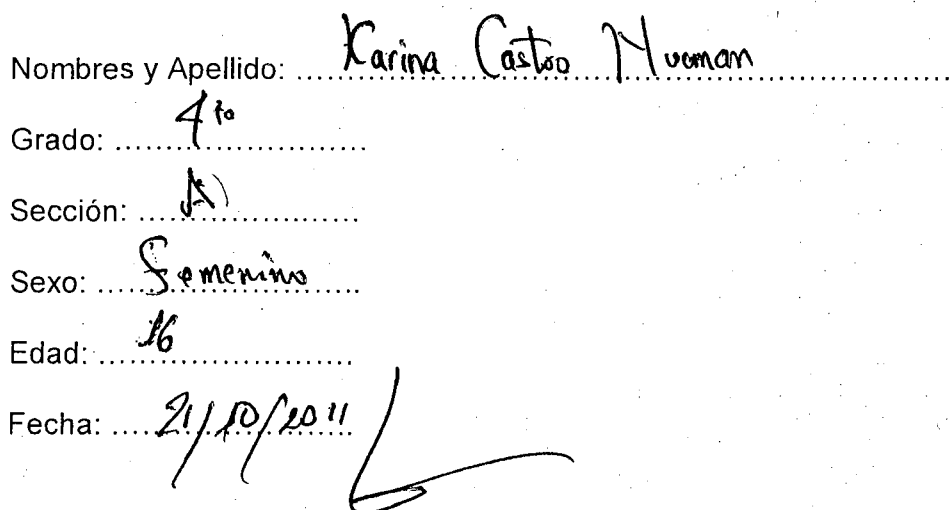 Nombres y Apellido: Karina Castro
Grado: 4to
Sección: "A"
Sexo: Femenino
Edad: 16
Fecha: 21/10/2011